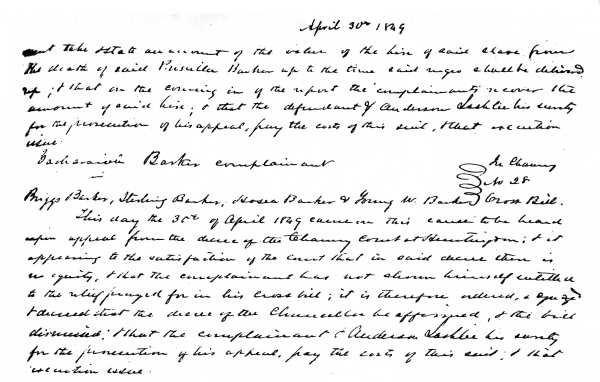 April 30th 1849
and take & state an account of the value of the hire of said slave from
the death of said Priscilla Barker up to the time said negro shall be delivered
up; & that on the coming in of the report the complainants recover the
amount of said hire; & that the defendant & Anderson Lashlee his surety
for the prosecution of his appeal, pay the costs of this suit, & that execution
issue.
Barker complainant
In Chancery
No 28
Briggs Barker, Sterling Barker, Hosea Barker & Young W. Barker Cross Bill.
This day the 30th of April 1849 came on this cause to be heard
upon appeal from the decree of the Chancery Court at Huntingdon; & it
appearing to the satisfaction of the court that in said decree there is
equity, & that the complainant has not shown himself entitled
to the relief prayed for in his cross bill; it is therefore ordered,
& decreed that the decree of the Chancellor be affirmed, & the bill
dismissed; & that the complainant & Anderson Lashlee his surety
for the prosecution of his appeal, pay the costs of this suit; & that
execution issue.